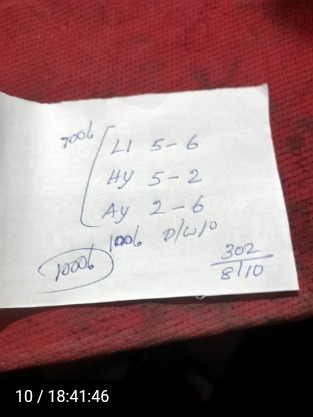 700b
LI 5-6
HY 5-2
Ay 2-6
100b
1000b
302
8/10
10 / 18:41:46